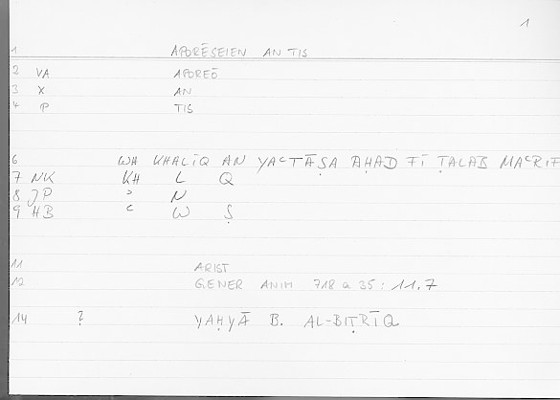 1
1 APORĒSEIEN AN TIS
2 VA APOREŌ
3 X AN
4 P TIS
6 WA KHALĪQ AN YACTĀṢA AḤAD FĪ ṬALAB MACRIF
7 NK KH L Q
8 JP ɔ N
9 HB c W Ṣ
11 ARIST
12 GENER ANIM 718 a 35 : 11.7
14 ? YAḤYĀ B. AL-BIṬRĪQ